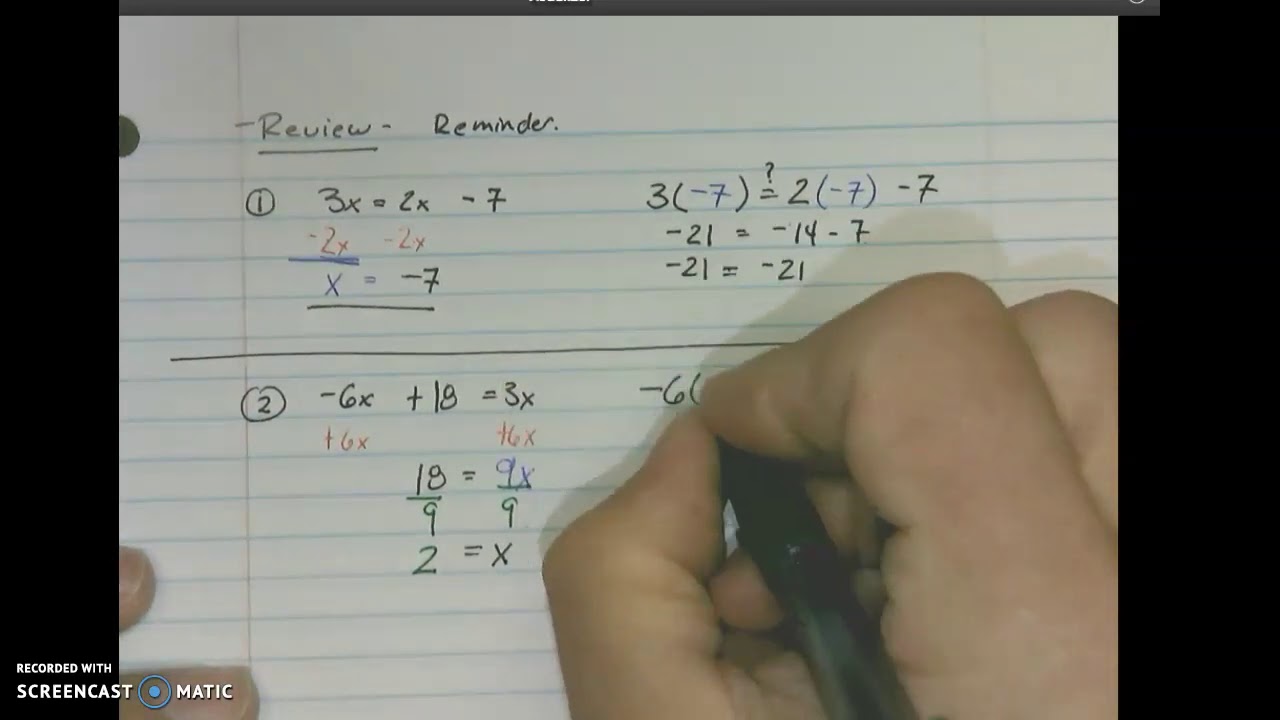 -Review- Reminder.
① 3x = 2x - 7
-2x -2x
x = -7
3(-7) ?= 2(-7) - 7
-21 = -14 - 7
-21 = -21
② -6x + 18 = 3x
+6x +6x
18 = 9x
9 9
2 = x
-6(
RECORDED WITH
SCREENCAST MATIC